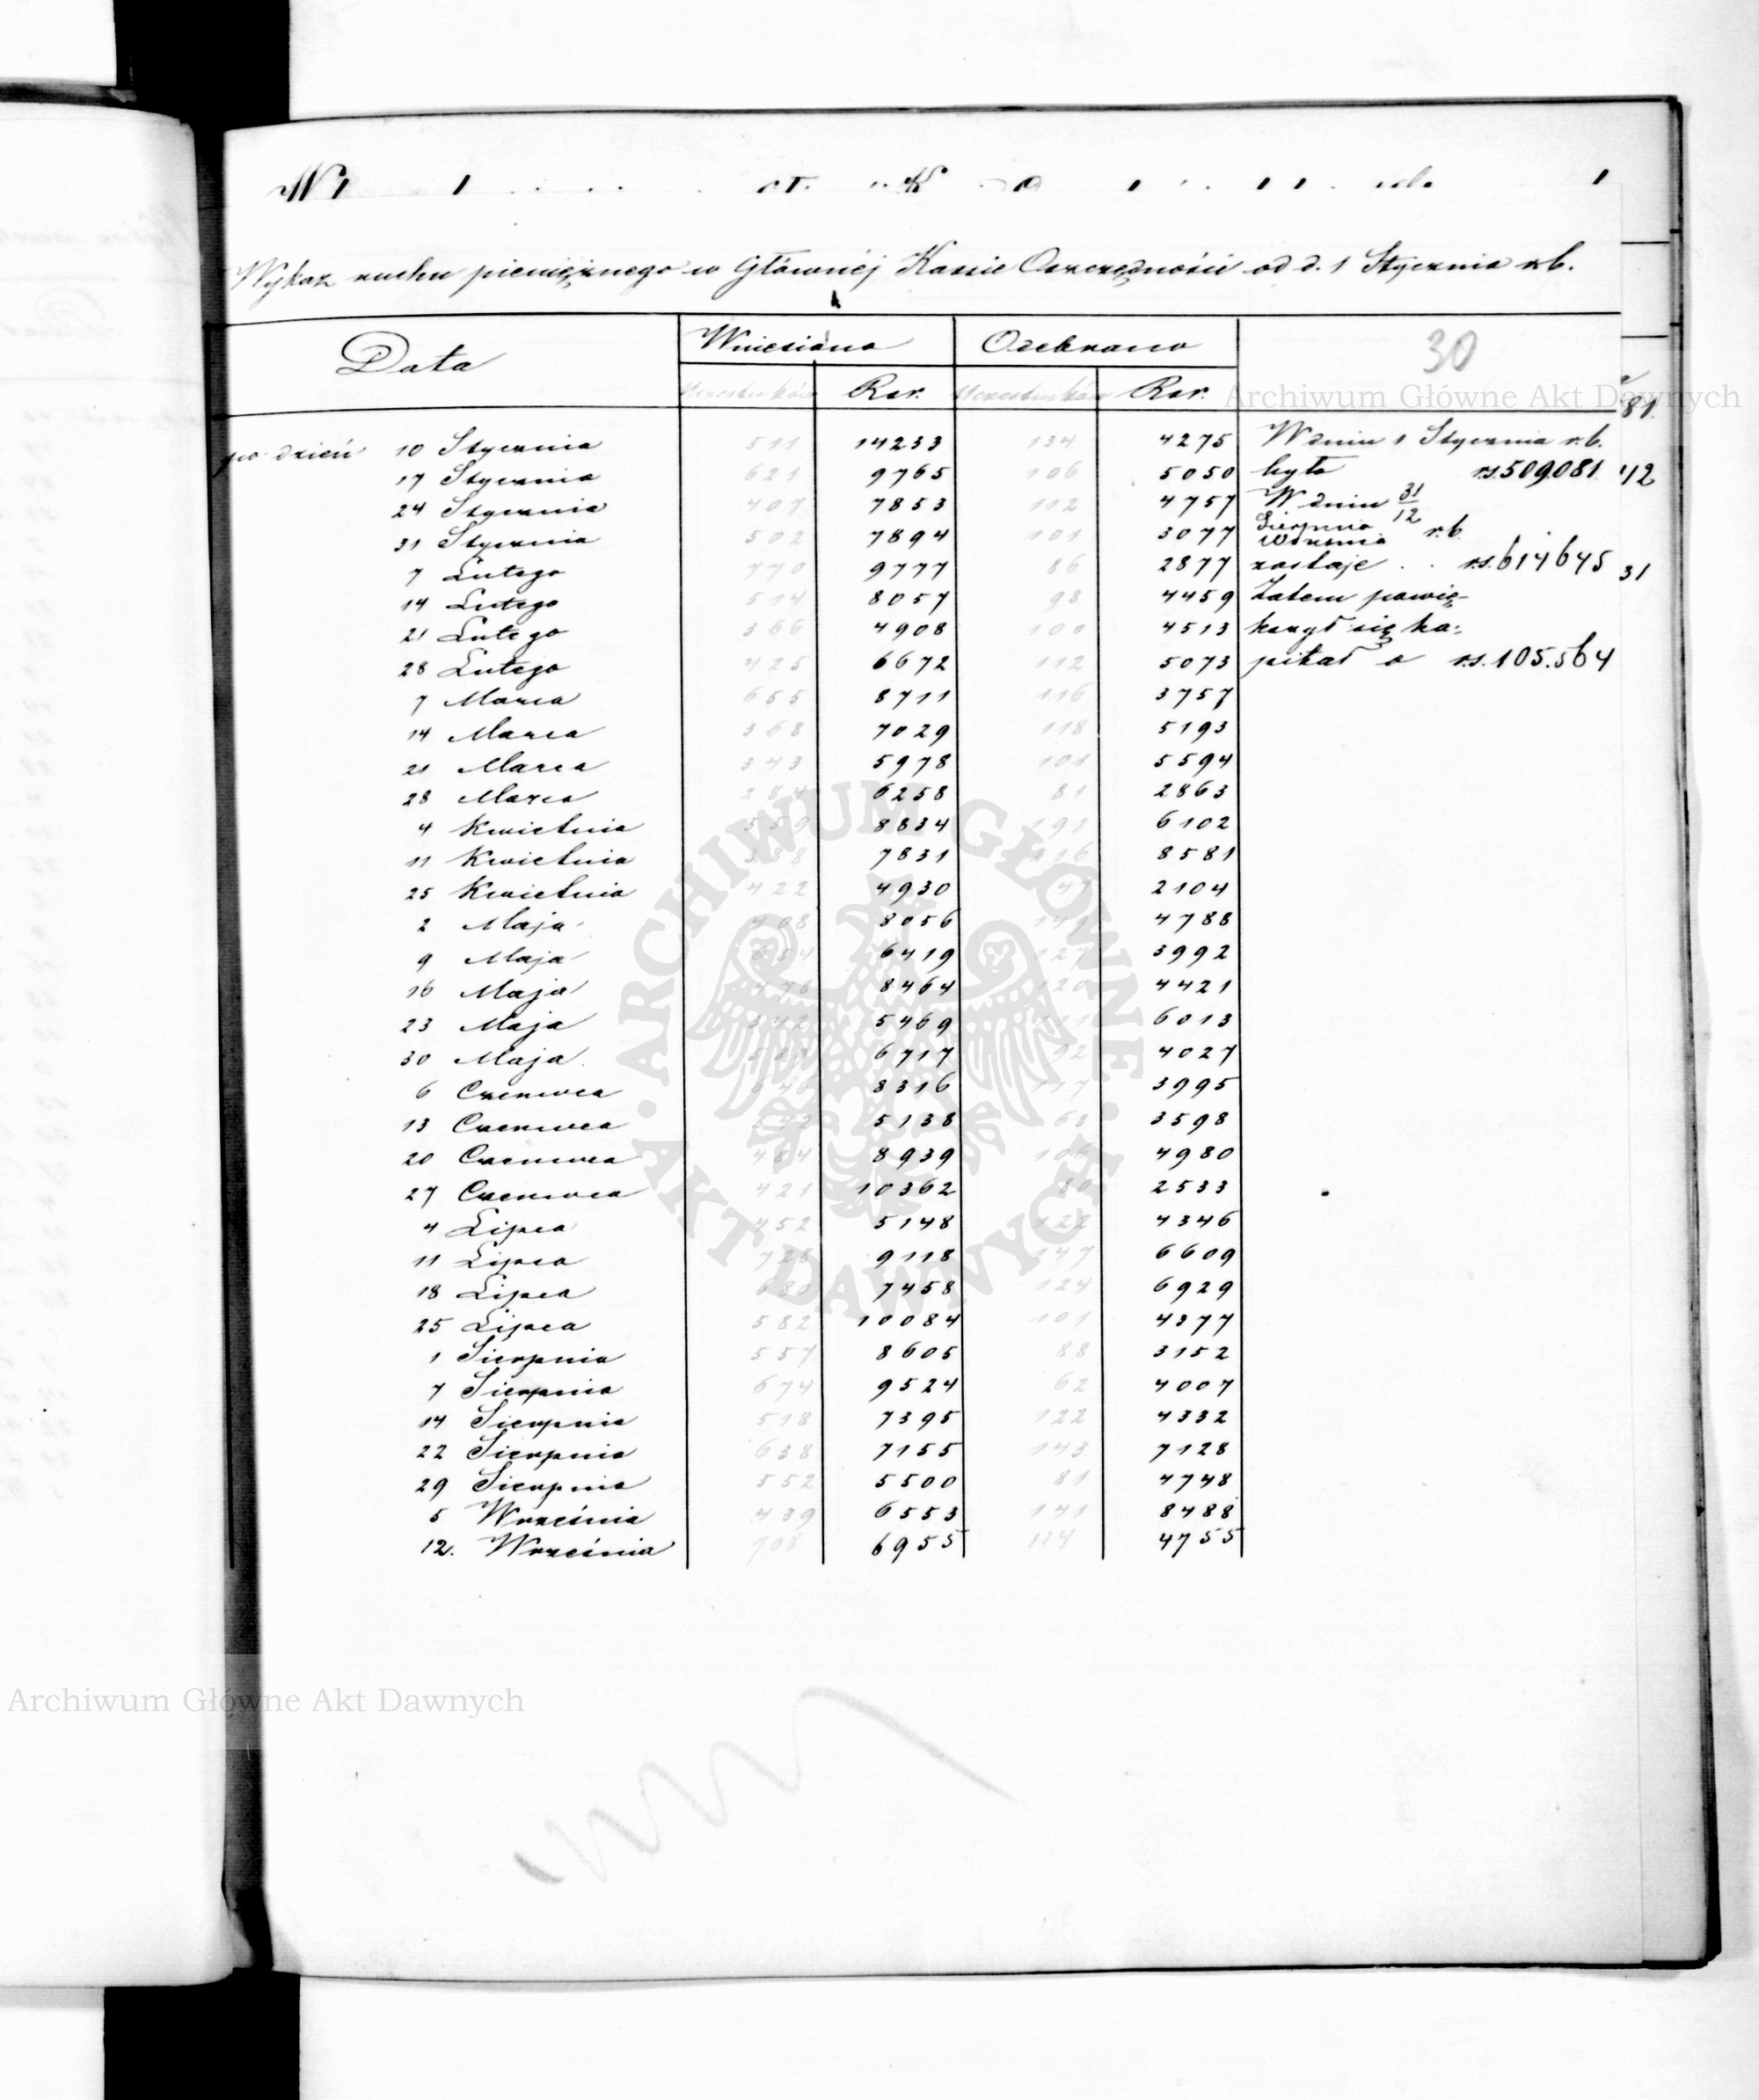 Wykaz ruchu pieniężnego w Głównéj Kassie Oszczędności od d. 1 Stycznia r.b.
30
Data Wniesiono Odebrano
Uczestników Rsr. Uczestników Rsr.
Archiwum Główne Akt Dawnych
81.
po dzień 10 Stycznia 511 14233 134 4275 W dniu 1 Stycznia r.b.
17 Stycznia 621 9765 106 5050 było rs. 509.081. 42
24 Stycznia 407 7853 112 4757 W dniu 31/12
31 Stycznia 502 7894 101 3077 Sierpnia Września r.b.
7 Lutego 770 9777 86 2877 zostaje . . rs. 614645 31
14 Lutego 514 8057 98 4459 Zatem powię-
21 Lutego 366 4908 100 4513 kszył się ka-
28 Lutego 425 6672 112 5073 pitał o rs. 105.564
7 Marca 655 8711 116 3757
14 Marca 368 7029 118 5193
21 Marca 343 5978 101 5594
28 Marca 6258 81 2863
4 Kwietnia 559 8834 191 6102
11 Kwietnia 7831 8581
25 Kwietnia 422 4930 47 2104
2 Maja 8056 4788
9 Maja 6419 3992
16 Maja 8464 120 4421
23 Maja 5469 6013
30 Maja 6717 92 4027
6 Czerwca 8316 117 3995
13 Czerwca 5138 68 3598
20 Czerwca 8939 106 4980
27 Czerwca 421 10362 80 2533
4 Lipca 452 5148 122 4346
11 Lipca 9118 147 6609
18 Lipca 7458 124 6929
25 Lipca 582 10084 101 4377
1 Sierpnia 557 8605 88 3152
7 Sierpnia 674 9524 62 4007
14 Sierpnia 518 7395 122 4332
22 Sierpnia 638 7155 143 7128
29 Sierpnia 552 5500 81 4748
5 Września 439 6553 141 8488
12. Września 708 6955 114 4755
ARCHIWUM GŁÓWNE AKT DAWNYCH
Archiwum Główne Akt Dawnych